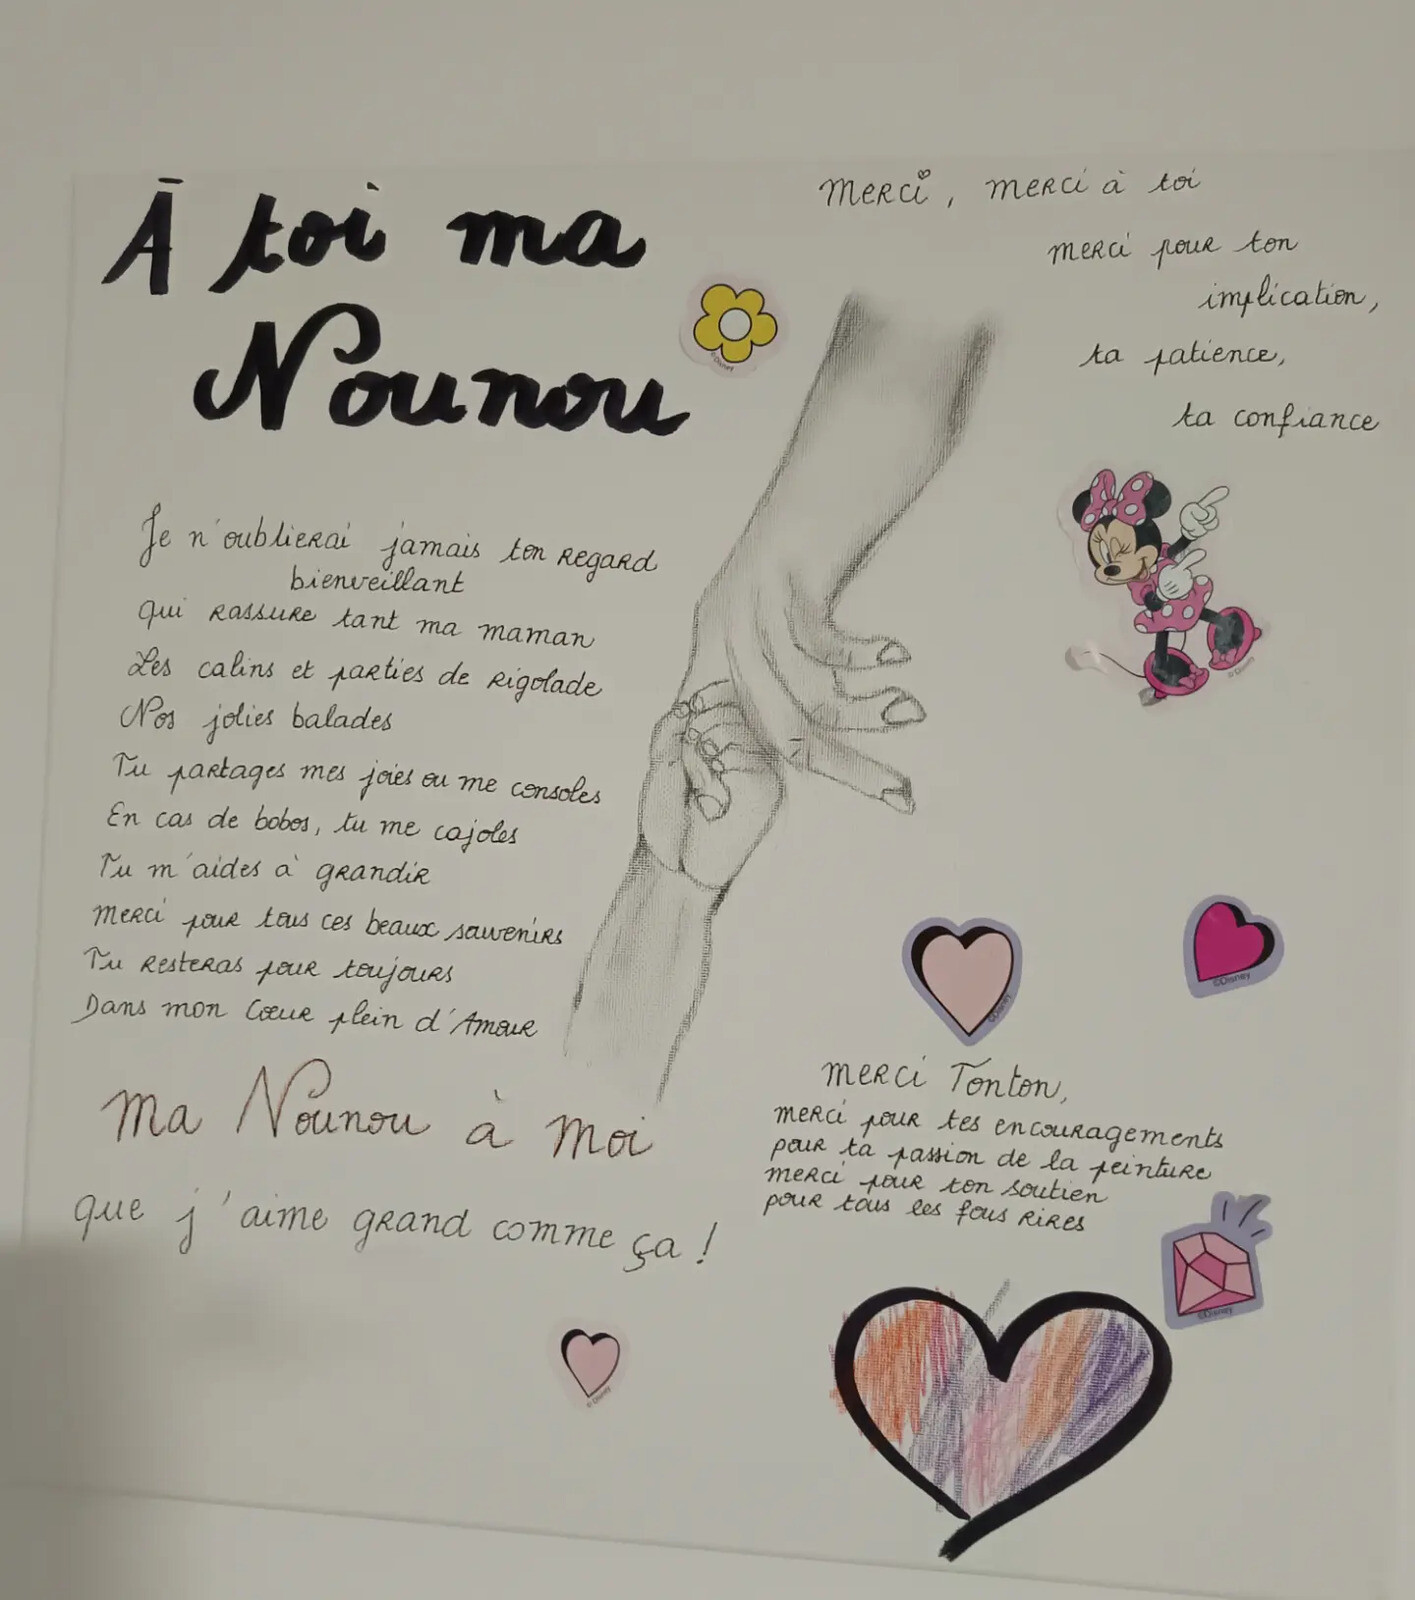 À toi ma
Nounou
Je n'oublierai jamais ton regard
bienveillant
qui rassure tant ma maman
Les calins et parties de rigolade
Nos jolies balades
Tu partages mes joies ou me consoles
En cas de bobos, tu me cajoles
Tu m'aides à grandir
merci pour tous ces beaux souvenirs
Tu resteras pour toujours
Dans mon Cœur plein d'Amour
ma Nounou à moi
que j'aime grand comme ça !
merci, merci à toi
merci pour ton
implication,
ta patience,
ta confiance
merci Tonton,
merci pour tes encouragements
pour ta passion de la peinture
merci pour ton soutien
pour tous les fous rires
©Disney
©Disney
©Disney
©Disney
©Disney
©Disney